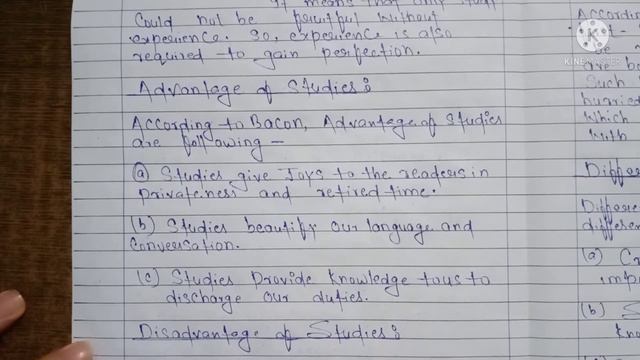 It means that only study
Could not be fruitful without
experience. So, experience is also
required to gain perfection.
Advantage of Studies:
According to Bacon, Advantage of Studies
are following -
(a) Studies give Joys to the readers in
privateness and retired time.
(b) Studies beautify our language and
Conversation.
(c) Studies Provide Knowledge to us to
discharge our duties.
Disadvantage of Studies:
Accordin
are
are ba
Such
hurried
Which
with
Differe
Differen
differen
(a)
imp
(b) S
Kno
KINEMASTER